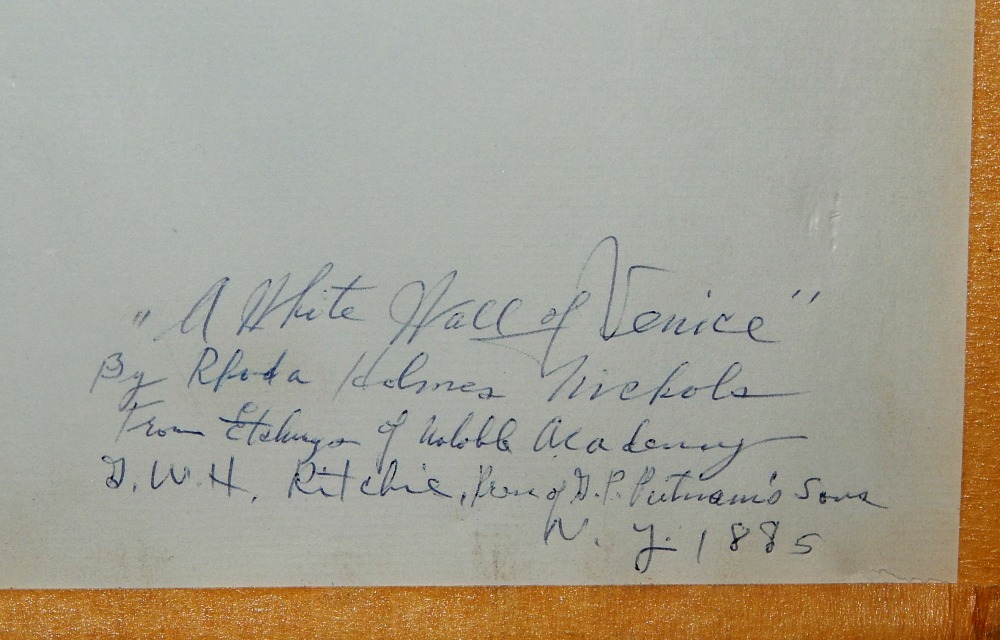 "A White Wall of Venice"
By Rhoda Holmes Nichols
From Etchings of Notable Academy
G. W. H. Ritchie, Press of G. P. Putnam's Sons
N. Y. 1885